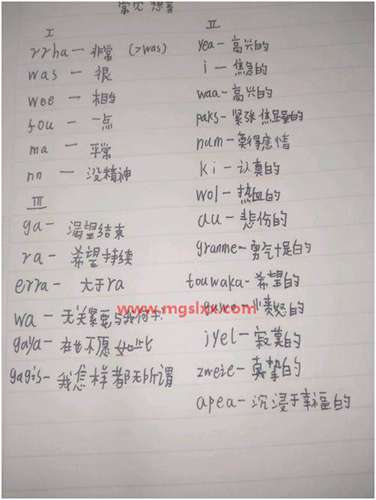 常见想音
I
rrha — 非常 (>was)
was — 很
wee — 相当
fou — 一点
ma — 平常
nn — 没精神
III
ga — 渴望结束
ra — 希望持续
erra — 大于ra
wa — 无关紧要与
gaya — 再也不愿如此
gagis — 我怎样都无所谓
II
yea — 高兴的
i — 焦急的
waa — 高兴的
paks — 紧张
num — 莫得感情
ki — 认真的
wol — 热血的
au — 悲伤的
granme — 勇气十足的
touwaka — 希望的
guwo
jyel — 寂寞的
zweie — 真挚的
apea — 沉浸于幸福的
www.mgslxx.com